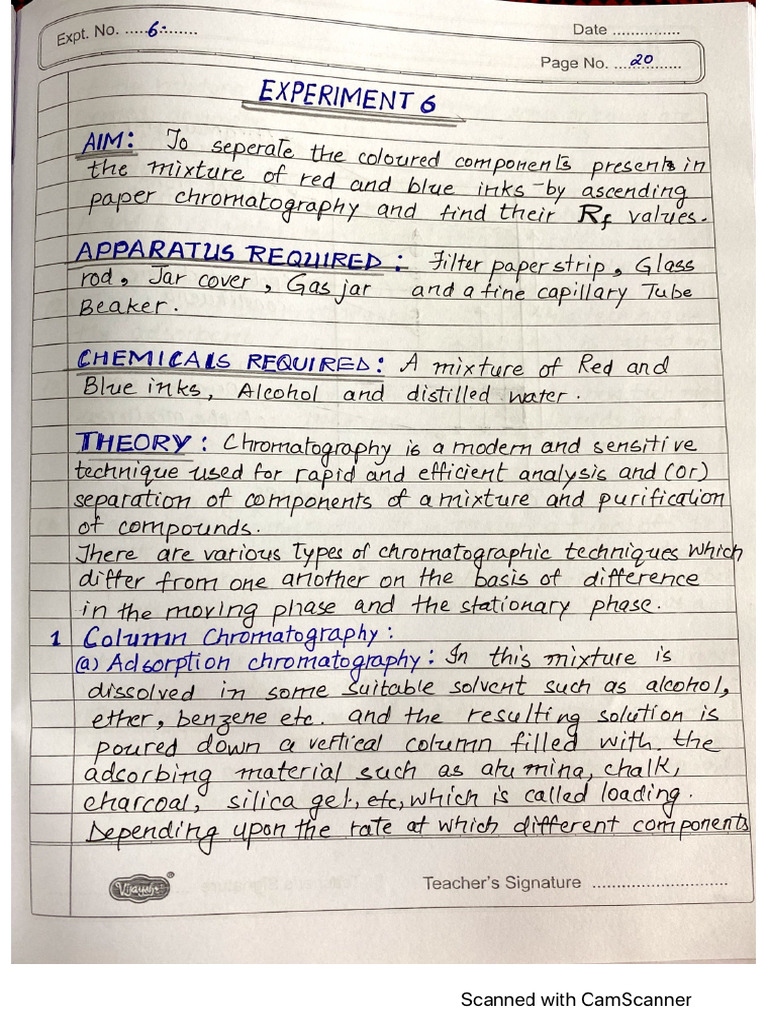 Expt. No. ..... 6:.......
Date ...............
Page No. ....20.......
EXPERIMENT 6
AIM: To seperate the coloured components present in
the mixture of red and blue inks by ascending
paper chromatography and find their Rf values.
APPARATUS REQUIRED: Filter paper strip, Glass
rod, Jar cover, Gas jar and a fine capillary Tube
Beaker.
CHEMICALS REQUIRED: A mixture of Red and
Blue inks, Alcohol and distilled water.
THEORY: Chromatography is a modern and sensitive
technique used for rapid and efficient analysis and (or)
separation of components of a mixture and purification
of compounds.
There are various Types of chromatographic techniques which
differ from one another on the basis of difference
in the moving phase and the stationary phase.
1 Column Chromatography:
(a) Adsorption chromatography: In this mixture is
dissolved in some suitable solvent such as alcohol,
ether, benzene etc. and the resulting solution is
poured down a vertical column filled with the
adsorbing material such as alumina, chalk,
charcoal, silica gel, etc, which is called loading.
Depending upon the rate at which different components
Vijayshree
Teacher's Signature ............................
Scanned with CamScanner